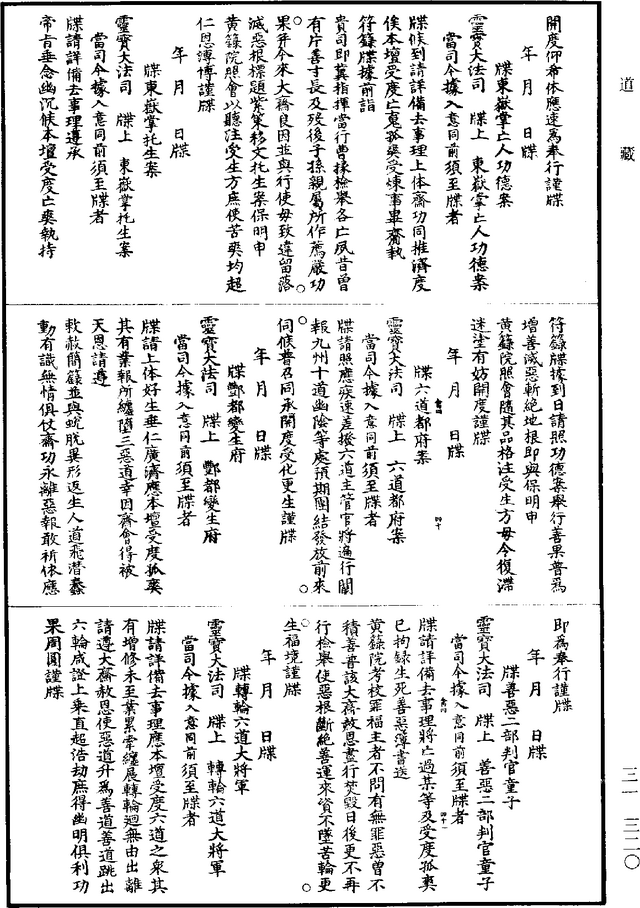 道藏
開度仰希体應速為奉行謹牒
年　月　日牒
牒東嶽掌亡人功德案
靈寶大法司　牒上　東嶽掌亡人功德案
當司今據入意同前須至牒者
牒候到請詳備去事理上体齋功同推濟度
俟本壇受度亡䰟孤䰟受煉事畢齎執
符籙牒據前詣
貴司即冀指揮當行曹掾檢舉各亡夙昔曾
有片善寸長及歿後子孫親屬所作薦嚴功
果并今來大齋良因並與行使毋致違留落
滅惡根標題紫策移文托生案保明申
黄籙院照會以聽注受生方庶使苦爽均超
仁恩溥博謹牒
年　月　日牒
牒東嶽掌托生案
靈寶大法司　牒上　東嶽掌托生案
當司今據入意同前須至牒者
牒請詳備去事理遵承
帝旨垂念幽沉候本壇受度亡爽執持
符籙牒據到日請照功德案舉行善果普爲
增善滅惡斬絶地根即與保明申
黄籙院照會隨其品格注受生方毋令復滯
迷塗有妨開度謹牒
年　月　日牒
牒六道都府案
靈寶大法司　牒上　六道都府案
當司今據入意同前須至牒者
牒請照應疾速差撥六道主管官將遍行關
報九州十道幽陰等處預期團結發放前來
伺候普召同承開度受化更生謹牒
年　月　日牒
牒酆都變生府
靈寶大法司　牒上　酆都變生府
當司今據入意同前須至牒者
牒請上体好生垂仁廣濟應本壇受度孤爽
其有業報所纏墮三惡道幸因齋會得被
天恩請遵
敕赦簡籙並與蛻脱異形返生人道飛潜蠢
動有識無情俱仗齋功永離惡報敢祈依應
即爲奉行謹牒
年　月　日牒
牒善惡二部判官童子
靈寶大法司　牒上　善惡二部判官童子
當司今據入意同前須至牒者
牒請詳備去事理將亡過某等及受度孤爽
已拘録生死善惡簿書送
黄籙院考校罪福主者不問有無罪惡曾不
積善普該大齋赦恩盡行焚毀日後更不再
行檢舉使惡根斷絶善運來資不墜苦輪更
生福境謹牒
年　月　日牒
牒轉輪六道大將軍
靈寶大法司　牒上　轉輪六道大將軍
當司今據入意同前須至牒者
牒請詳備去事理應本壇受度六道之衆其
有增修未至業累牽纏展轉輪迴無由出離
請遵大齋赦恩使惡道升爲善道善道跳出
六輪咸證上乘直超浩劫庶得幽明俱利功
果周圓謹牒
三一　三二〇